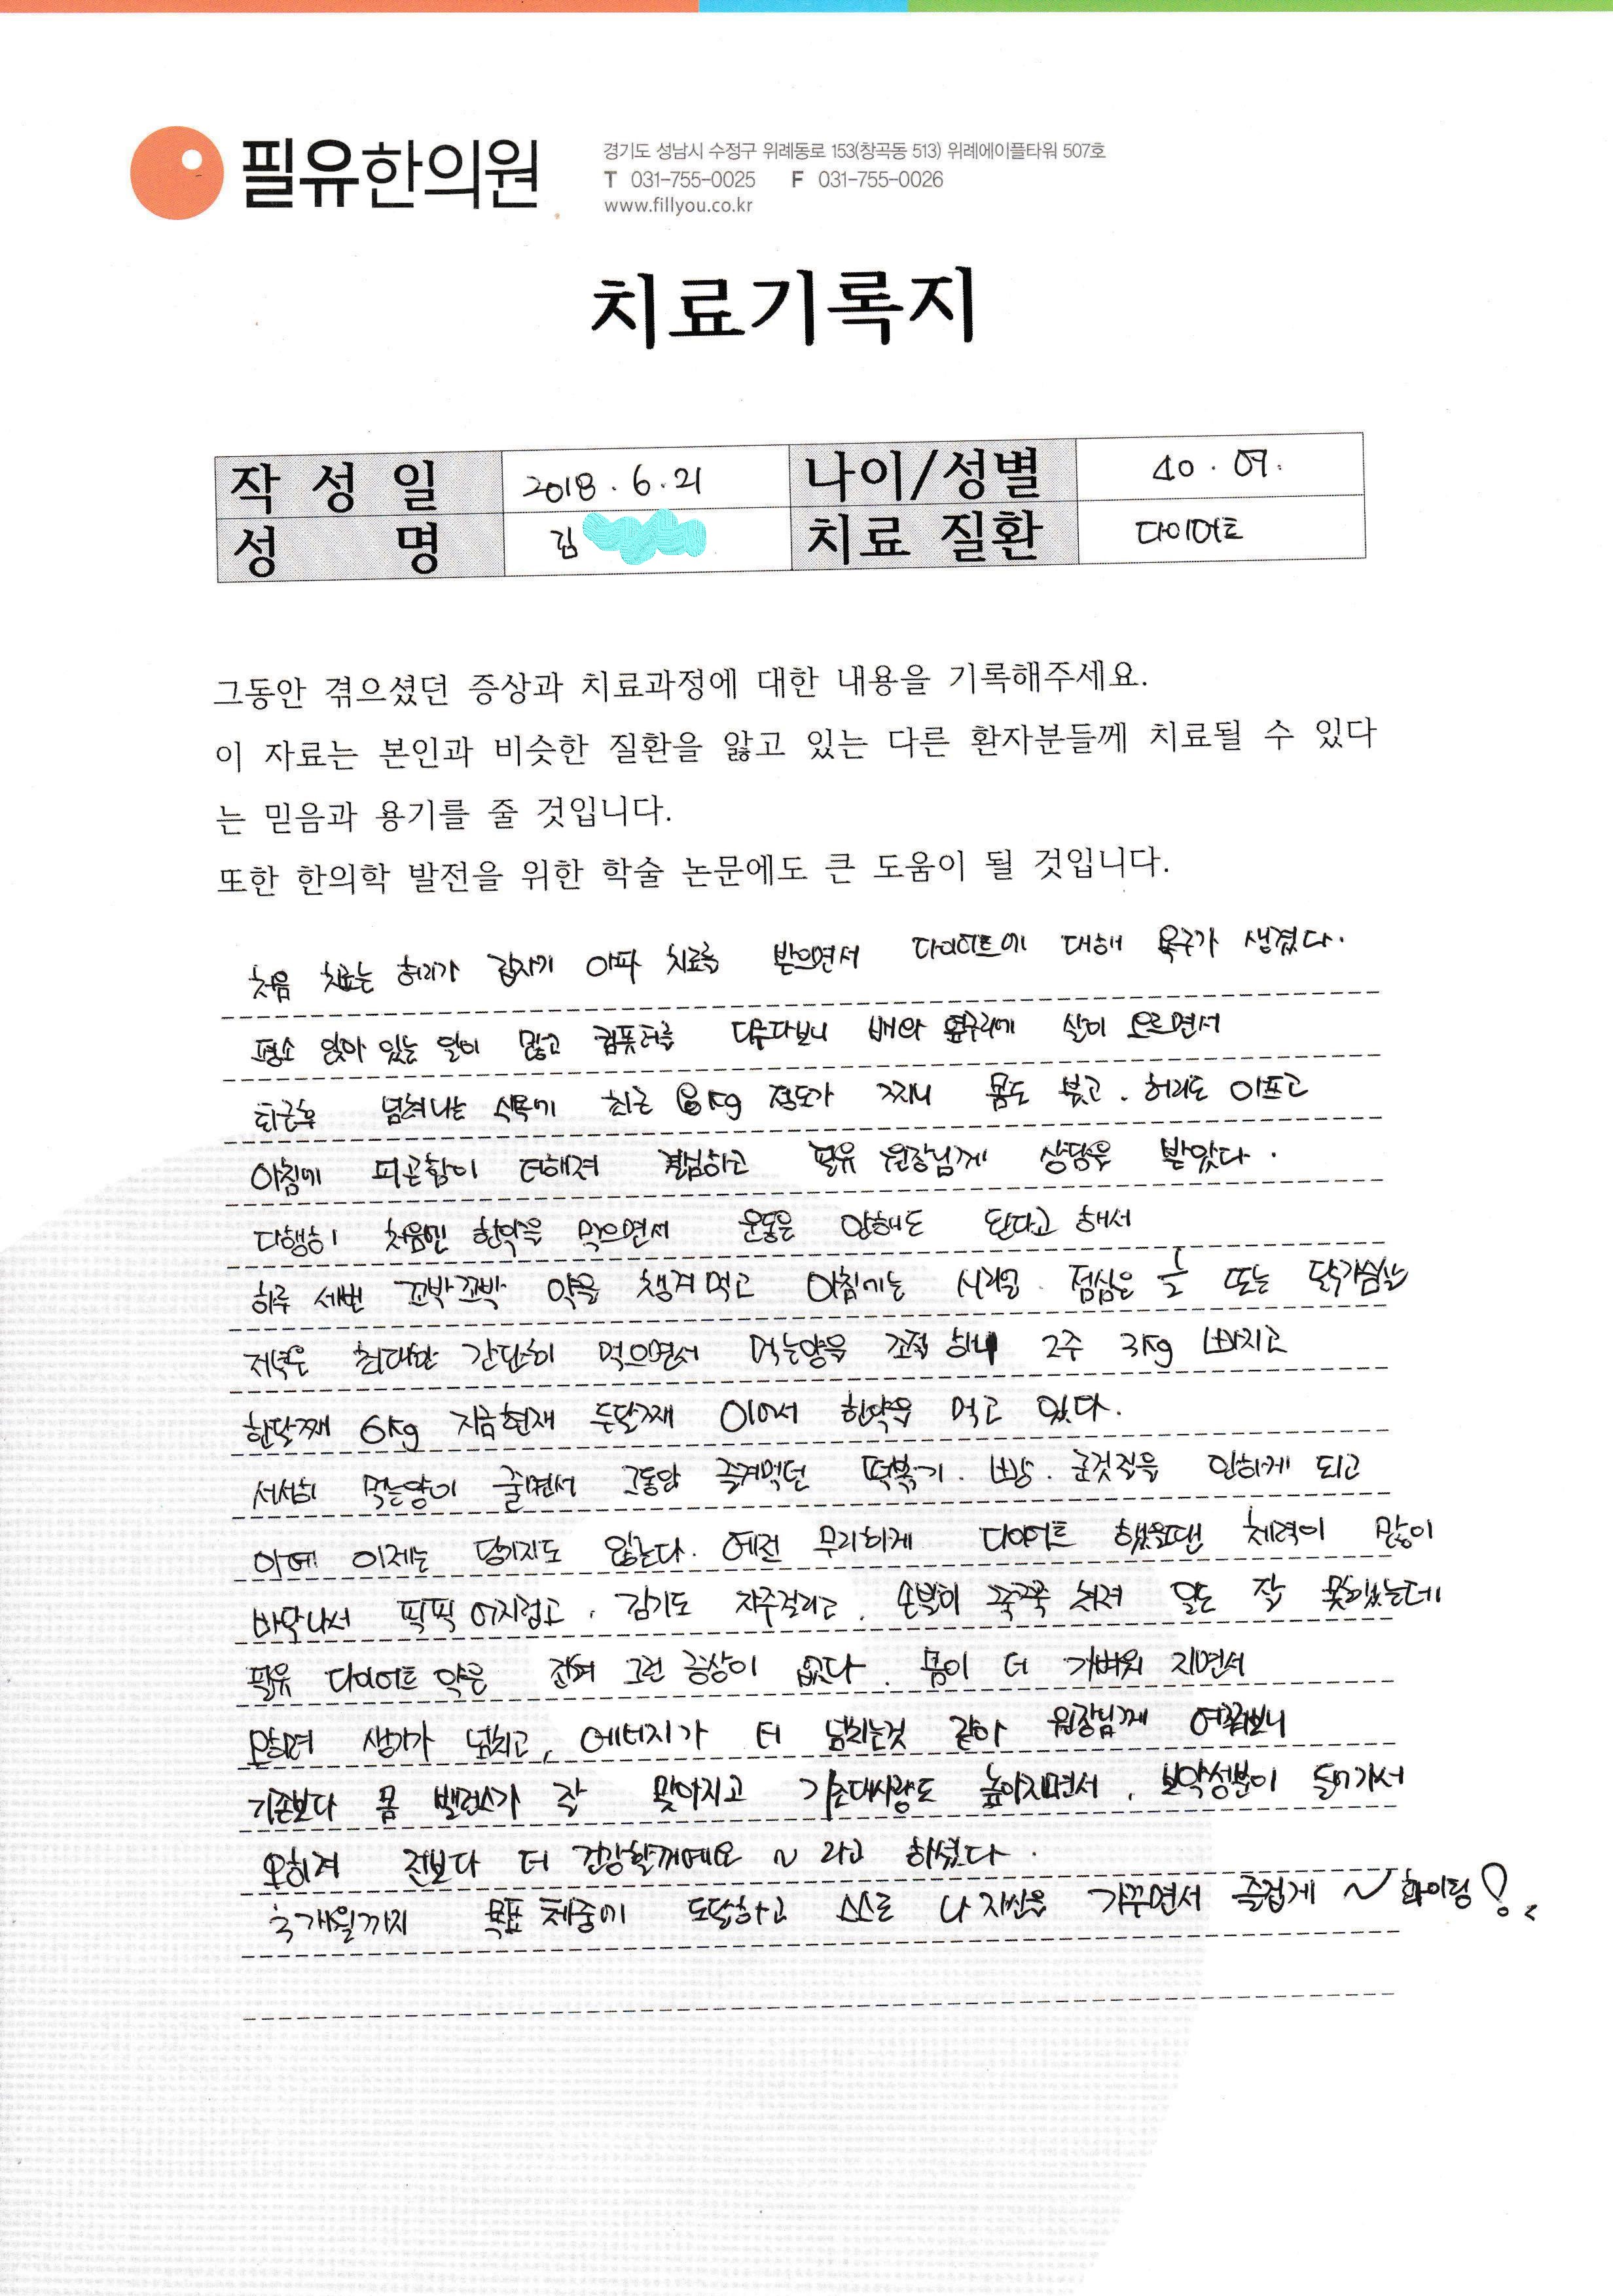 필유한의원
경기도 성남시 수정구 위례동로 153(창곡동 513) 위례에이플타워 507호
T 031-755-0025 F 031-755-0026
www.fillyou.co.kr
치료기록지
작 성 일 2018. 6. 21 나이/성별 40. 여.
성 명 김 치료 질환 다이어트
그동안 겪으셨던 증상과 치료과정에 대한 내용을 기록해주세요.
이 자료는 본인과 비슷한 질환을 앓고 있는 다른 환자분들께 치료될 수 있다
는 믿음과 용기를 줄 것입니다.
또한 한의학 발전을 위한 학술 논문에도 큰 도움이 될 것입니다.
처음 치료는 허리가 갑자기 아파 치료를 받으면서 다이어트에 대해 욕구가 생겼다.
평소 앉아 있는 일이 많고 컴퓨터를 다루다보니 배와 옆구리에 살이 오르면서
퇴근후 넘쳐나는 식욕에 최근 8kg 정도가 찌니 몸도 붓고. 허리도 아프고
아침에 피곤함이 더해져 결심하고 필유 원장님께 상담을 받았다.
다행히 처음엔 한약을 먹으면서 운동은 안해도 된다고 해서
하루 세번 꼬박꼬박 약을 챙겨먹고 아침에는 시리얼. 점심은 ½ 또는 닭가슴살
저녁은 최대한 간단히 먹으면서 먹는양을 조절 하니 2주 3kg 빠지고
한달째 6kg 지금현재 두달째 이어서 한약을 먹고 있다.
서서히 먹는양이 줄면서 그동안 즐겨먹던 떡볶기. 빵. 군것질을 안하게 되고
아예 이제는 당기지도 않는다. 예전 무리하게 다이어트 했을땐 체력이 많이
바닥나서 픽픽 어지럽고. 감기도 자주걸리고. 손발이 쭉쭉 쳐져 일도 잘 못했는데
필유 다이어트 약은 전혀 그런 증상이 없다. 몸이 더 가벼워 지면서
오히려 생기가 넘치고, 에너지가 더 넘치는것 같아 원장님께 여쭤보니
기존보다 몸 밸런스가 잘 맞아지고 기초대사량도 높아지면서. 보약성분이 들어가서
오히려 전보다 더 건강할꺼예요 ~ 라고 하셨다.
3개월까지 목표 체중에 도달하고 스스로 나 자신을 가꾸면서 즐겁게 ~ 화이팅!